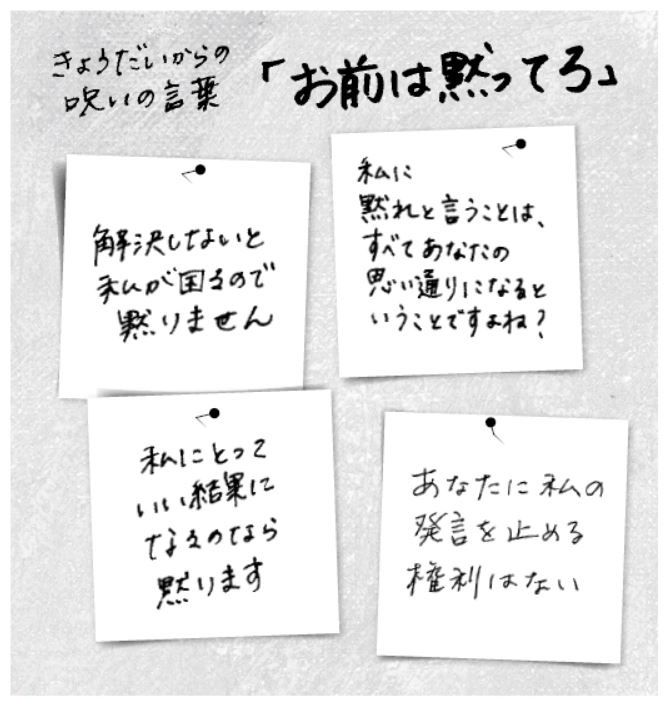 きょうだいからの
呪いの言葉
「お前は黙ってろ」
解決しないと
私が困るので
黙りません
私に
黙れと言うことは、
すべてあなたの
思い通りになると
いうことですよね?
私にとって
いい結果に
なるのなら
黙ります
あなたに私の
発言を止める
権利はない